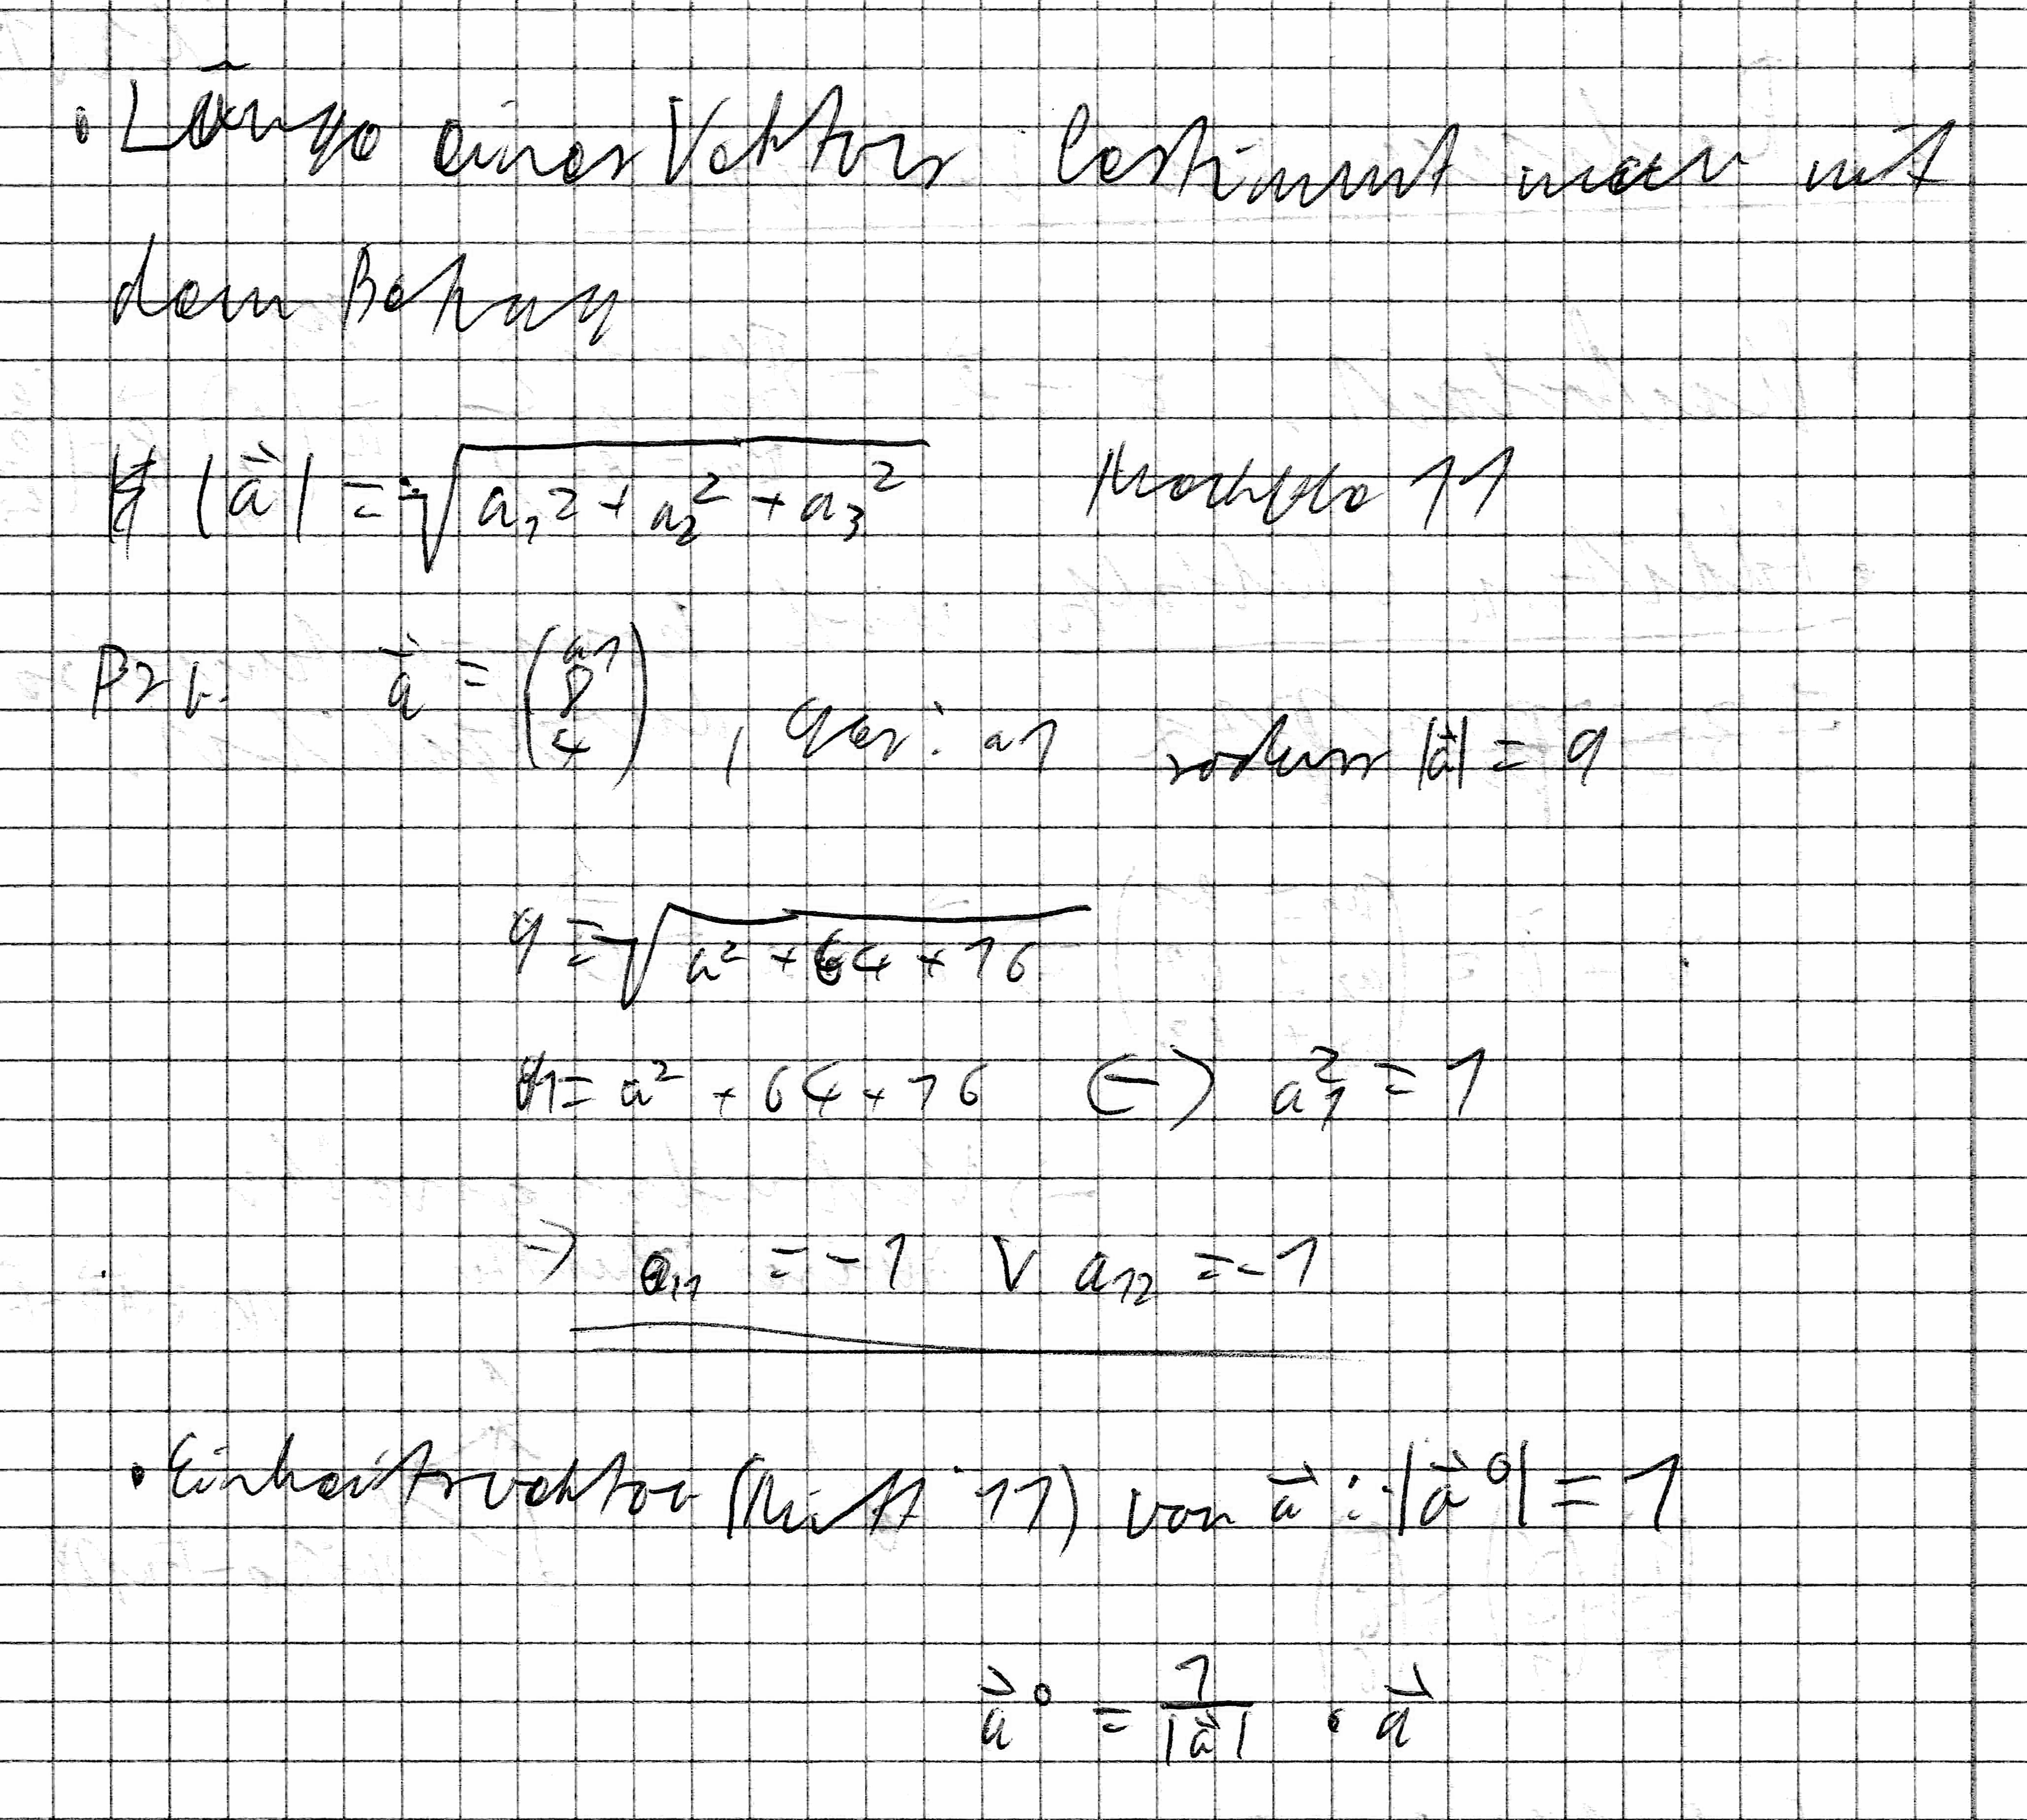 • Länge eines Vektors bestimmt man mit
dem Betrag
|a⃗| = √(a₁2 + a₂² + a₃²) Merkhilfe 11
Bsp. a⃗ = (a1 8 4), ges: a1 sodass |a⃗| = 9
9 = √(a² + 64 + 16)
81 = a² + 64 + 16 <=> a₁² = 1
→ a₁₁ = -1 ∨ a₁₂ = -1
• Einheitsvektor ( 11) von a⃗ : |a⃗°| = 1
a⃗° = 1/|a⃗| • a⃗